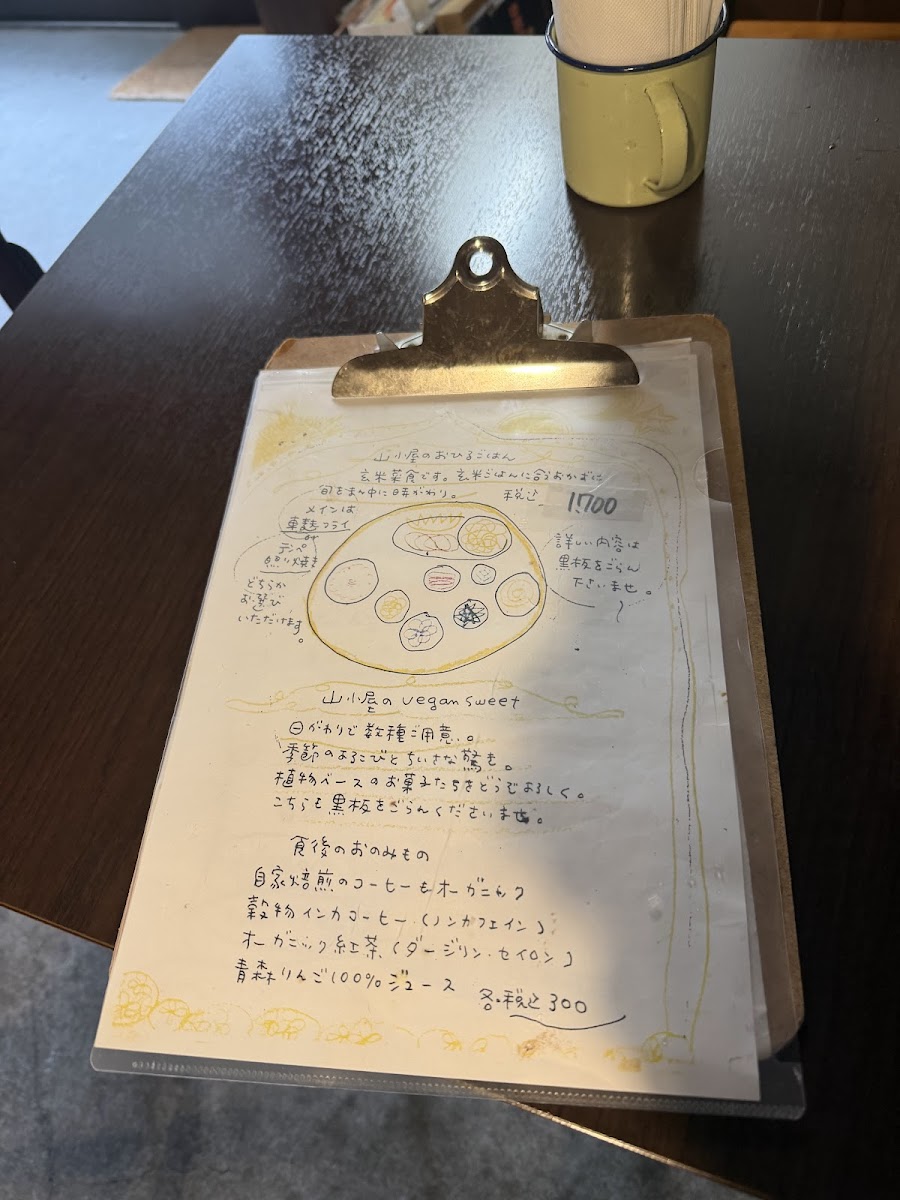 山小屋のおひるごはん
玄米菜食です。玄米ごはんに合うおかずに
旬をまん中に日替がわり。
税込 1.700
メインは
車麩フライ
or
テンペ
照り焼き
どちらか
お選び
いただけます。
詳しい内容は
黒板をごらん
下さいませ。
山小屋の vegan sweet
日がわりで数種ご用意。
季節のよろこびとちいさな驚を。
植物ベースのお菓子たちをどうぞよろしく。
こちらも黒板をごらんくださいませ。
食後のおのみもの
自家焙煎のコーヒーもオーガニック
穀物インカコーヒー(ノンカフェイン)
オーガニック紅茶(ダージリン・セイロン)
青森りんご100%ジュース
各・税込300